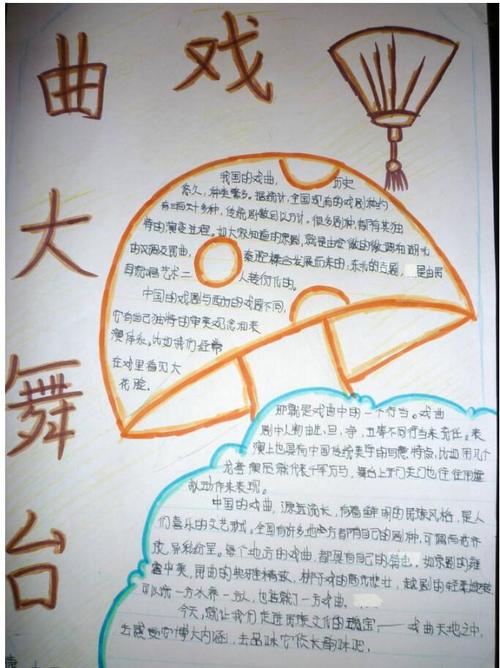 戏
曲
大
舞
台
我国的戏曲,历史
悠久,种类繁多。据统计,全国现有的戏剧种约
有三百六十多种,传统剧数目以万计。很多剧种,都有其独
特的演变过程。如大家知道的京剧,就是由安徽的徽调和湖北
的汉调及昆曲,秦腔糅合发展而来的;东北的吉剧,是由民
间歌唱艺术二人转衍化的。
中国的戏剧与西方的戏剧不同,
它有自己独特的审美观念和表
演体系。比如我们经常
在戏里看见大
花脸,
那就是戏曲中的一个行当。戏曲
剧中人物由生、旦、净、丑等不同行当来充任。表
演上也具有中国传统美学的写意特点,比如用几个
龙套演员就代表千军万马,舞台上开门关门也往往用虚
拟动作来表现。
中国的戏曲,源远流长,有着鲜明的民族风格,是人
们喜乐的文艺形式。全国有许多地方都有自己的剧种,可谓百花齐
放,异彩纷呈。每个地方的戏曲,都具有自己的特色,如京剧的雍
容华美,昆曲的典雅精致,梆子戏的高亢悲壮,越剧的轻柔婉转
可以说一方水养一方人,也造就了一方戏曲。
今天,就让我们走进民族文化的瑰宝——戏曲天地之中,
去感受它博大内涵,去品味它优长韵味吧。